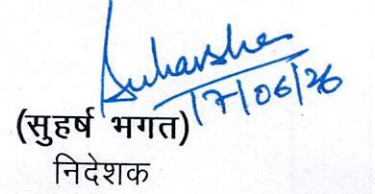 Suharsha
17/06/26
(सुहर्ष भगत)
निदेशक